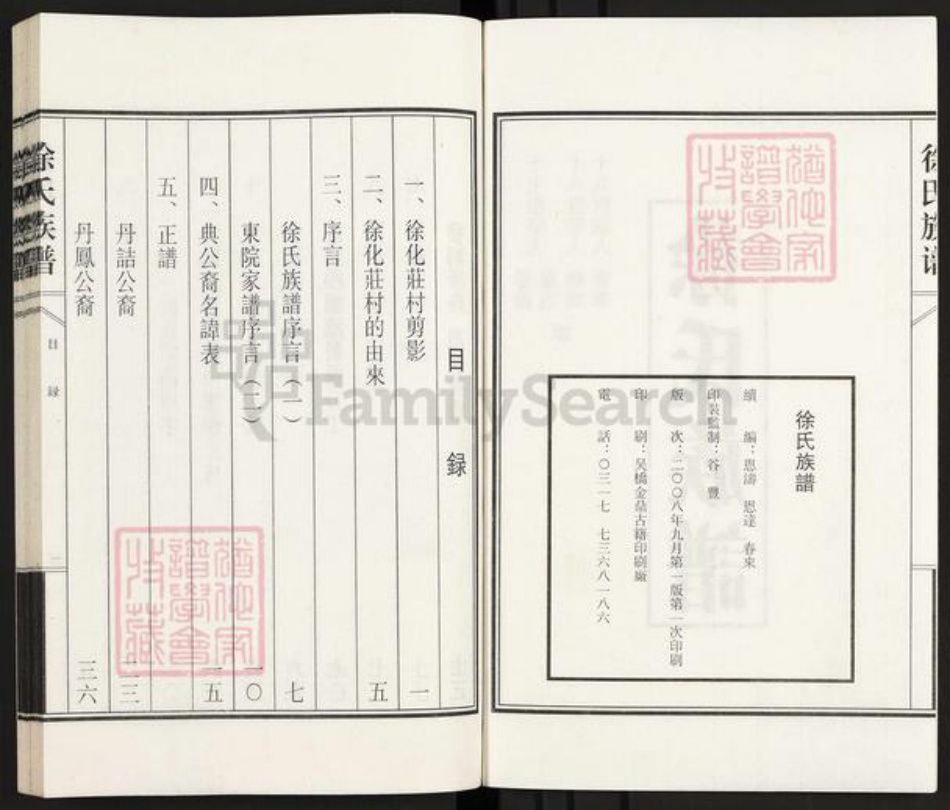 徐氏族譜
徐氏族譜
續編：恩濤 恩達 春來
印裝監制：谷豐
版次：二〇〇八年九月第一版第一次印刷
印刷：吳橋金鼎古籍印刷廠
電話：〇三一七 七三六八一八六
猶他家
譜學會
收藏
目録
一、徐化莊村剪影 一
二、徐化莊村的由來 五
三、序言
徐氏族譜序言（一） 七
東院家譜序言（二） 一〇
四、典公裔名諱表 一五
五、正譜
丹詰公裔
丹鳳公裔 三六
徐氏族譜
目録
猶他家
譜學會
收藏
FamilySearch